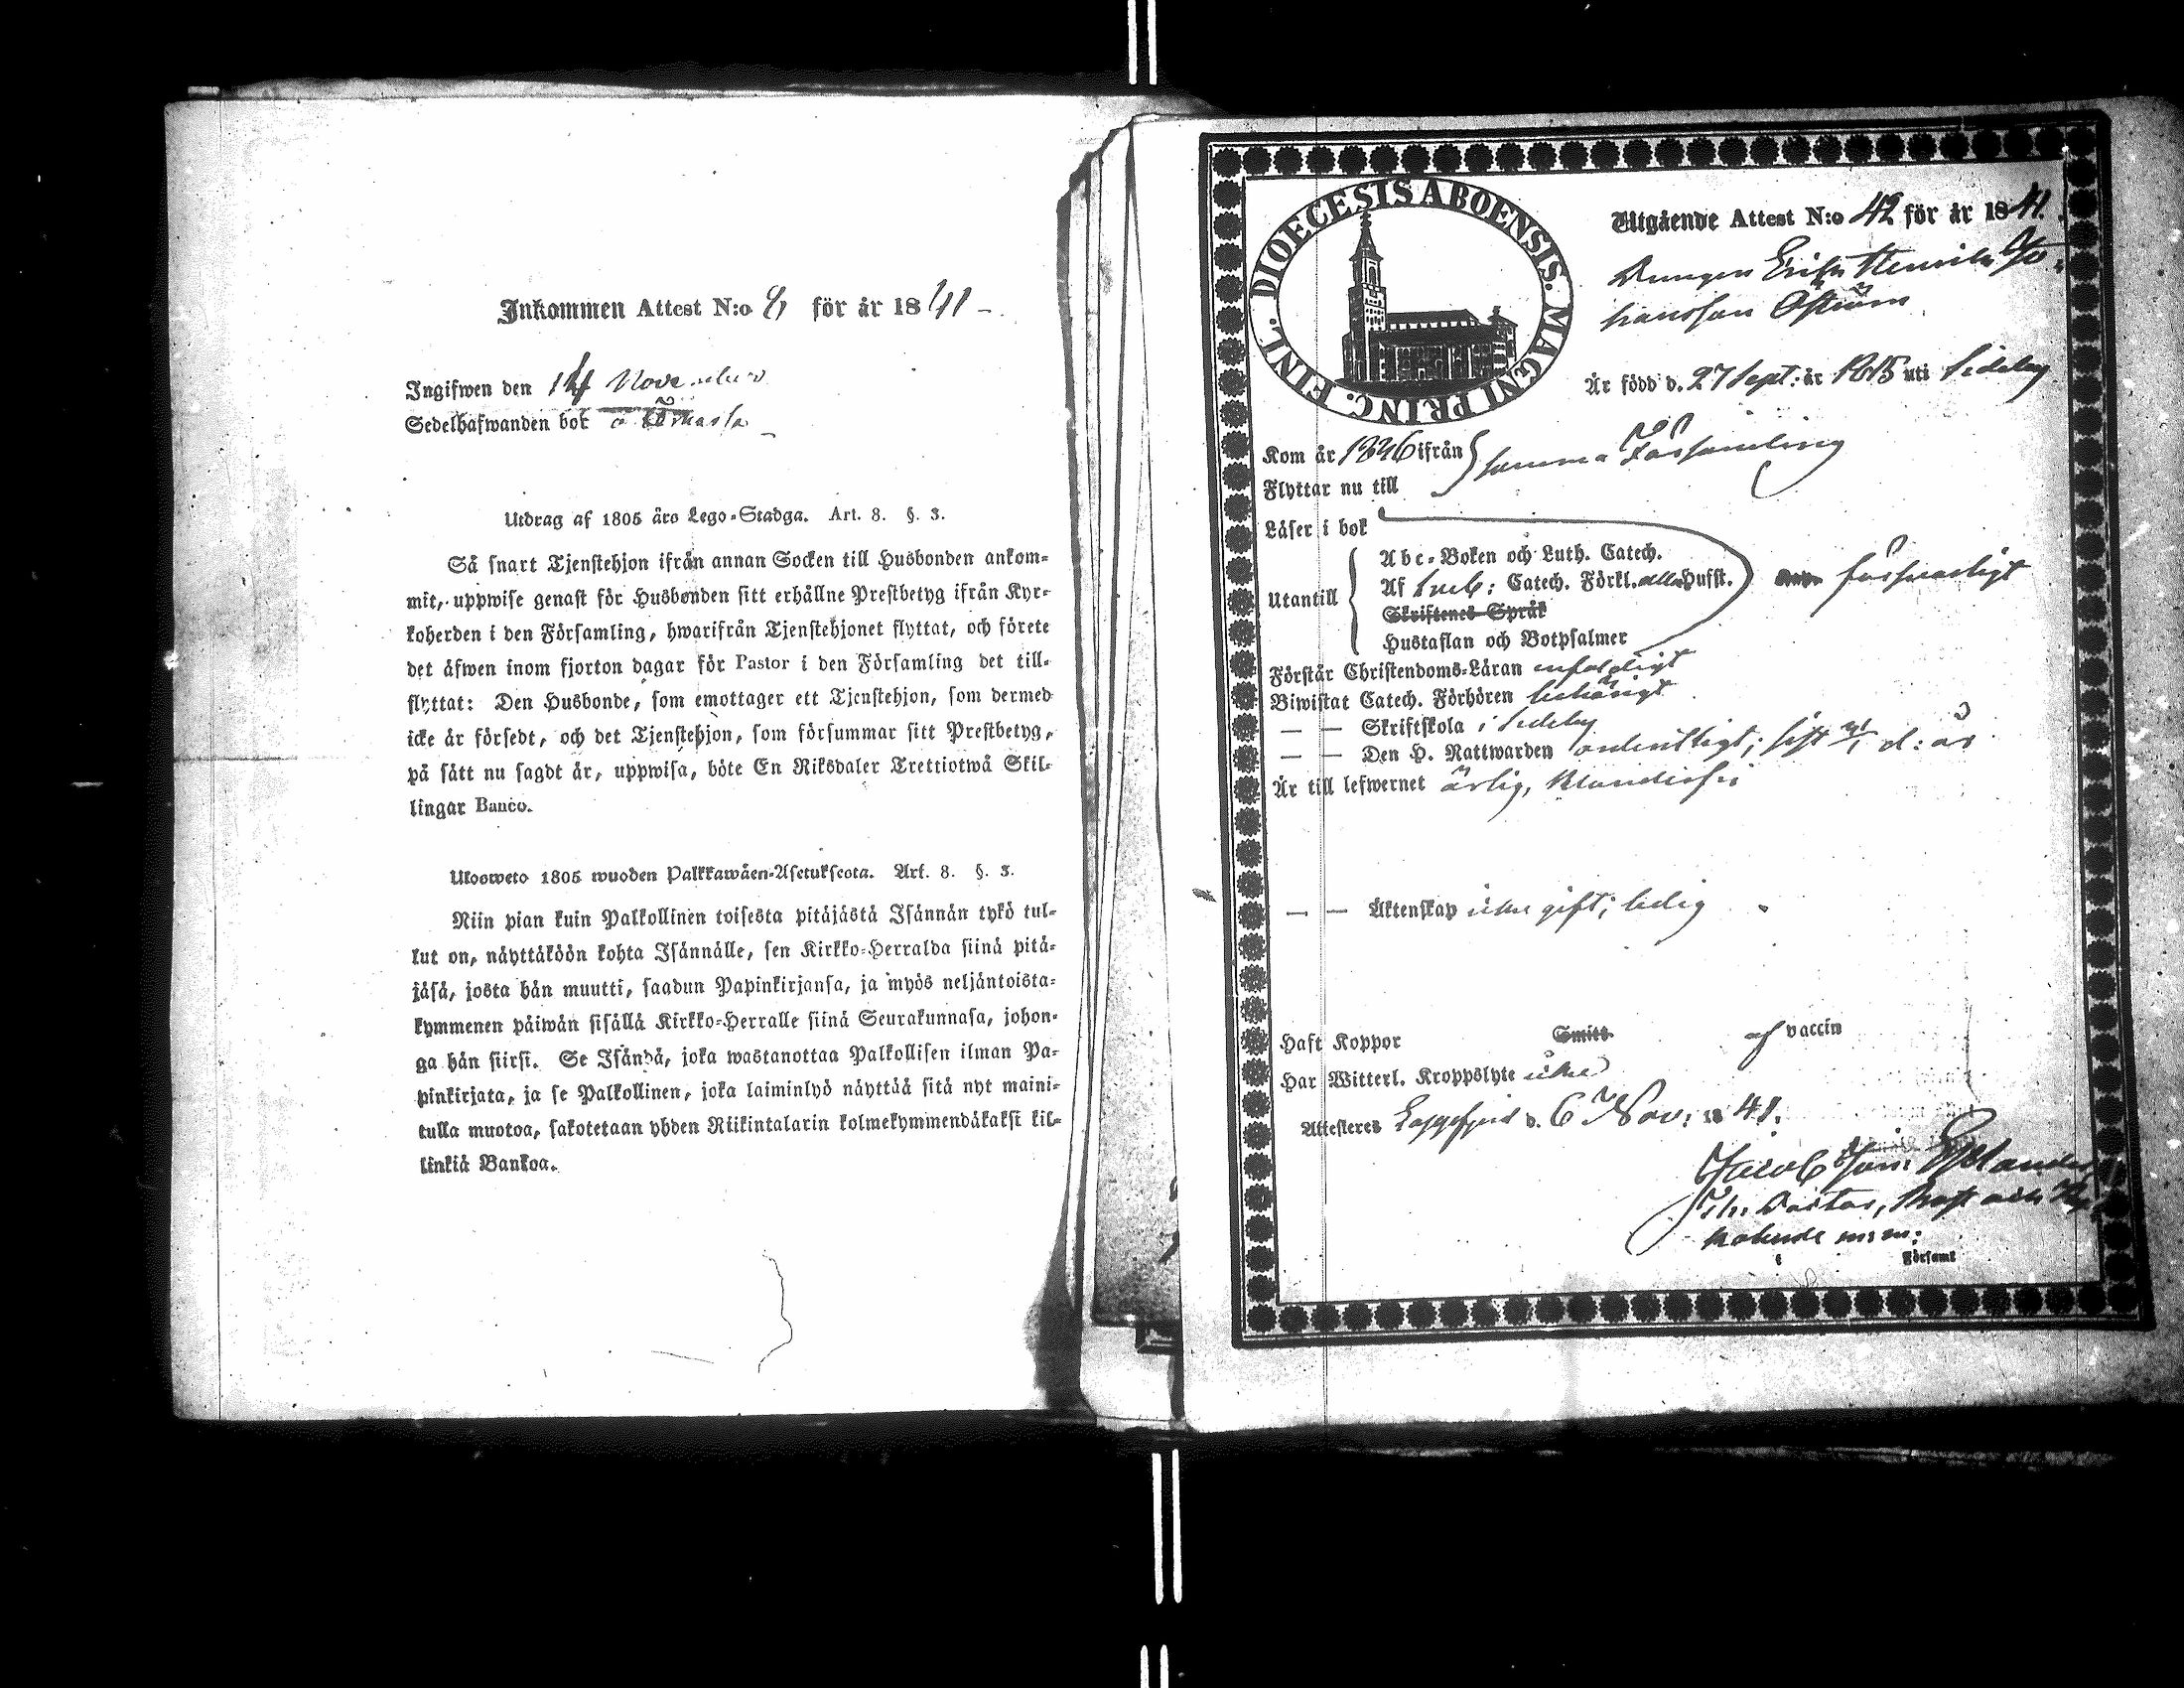 Inkommen Attest N:o 9 för år 1841 -
Ingifwen den 14 November
Sedelhafwanden bor å
Utdrag af 1805 års Lego-Stadga. Art. 8. §. 3.
Så snart Tjenstehjon ifrån annan Socken till Husbonden ankom-
mit, uppwise genast för Husbonden sitt erhållne Prestbetyg ifrån Kyr-
koherden i den Församling, hwarifrån Tjenstehjonet flyttat, och förete
det äfwen inom fjorton dagar för Pastor i den Församling det till-
flyttat: Den Husbonde, som emottager ett Tjenstehjon, som dermed
icke är försedt, och det Tjenstehjon, som försummar sitt Prestbetyg,
på sätt nu sagdt är, uppwisa, böte En Riksdaler Trettiotwå Skil-
lingar Banco.
Ulosweto 1805 wuoden Palkkawäen-Asetuksesta. Art. 8. §. 3.
Niin pian kuin Palkollinen toisesta pitäjästä Isännän tykö tul-
lut on, näyttäköön kohta Isännälle, sen Kirkko-Herralda siinä pitä-
jäsä, josta hän muutti, saadun Papinkirjansa, ja myös neljäntoista-
kymmenen päiwän sisällä Kirkko-Herralle siinä Seurakunnasa, johon-
ga hän siirsi. Se Isändä, joka wastanottaa Palkollisen ilman Pa-
pinkirjata, ja se Palkollinen, joka laiminlyö näyttää sitä nyt maini-
tulla muotoa, sakotetaan yhden Riikintalarin kolmekymmendäkaksi kil-
linkiä Bankoa.
DIOECESIS ABOENSIS. MAGNI PRINC. FINL.
Utgående Attest N:o 42 för år 1841.
Drengen Erik Henrik Jo-
hansson Öström
Är född d. 27 Sept: år 1815 uti Sideby
Kom år 1836 ifrån } samma Församling
Flyttar nu till
Läser i bok
Abc-Boken och Luth. Catech.
Utantill Af Sveb: Catech. Förkl. Hufst. försvarligt
Skriftenes Språk
Hustaflan och Botpsalmer
Förstår Christendoms-Läran enfaldigt
Biwistat Catech. Förhören behörigt
— — Skriftskola i Sideby
— — Den H. Nattwarden ordentligt; sist d: år
Är till lefwernet ärlig,
— — Äktenskap icke gift; ledig
Haft Koppor Smitt. af vaccin
Har Witterl. Kroppslyte icke
Attesteres d. 6 Nov: 1841.
Jacob
Pastor,
i Församl